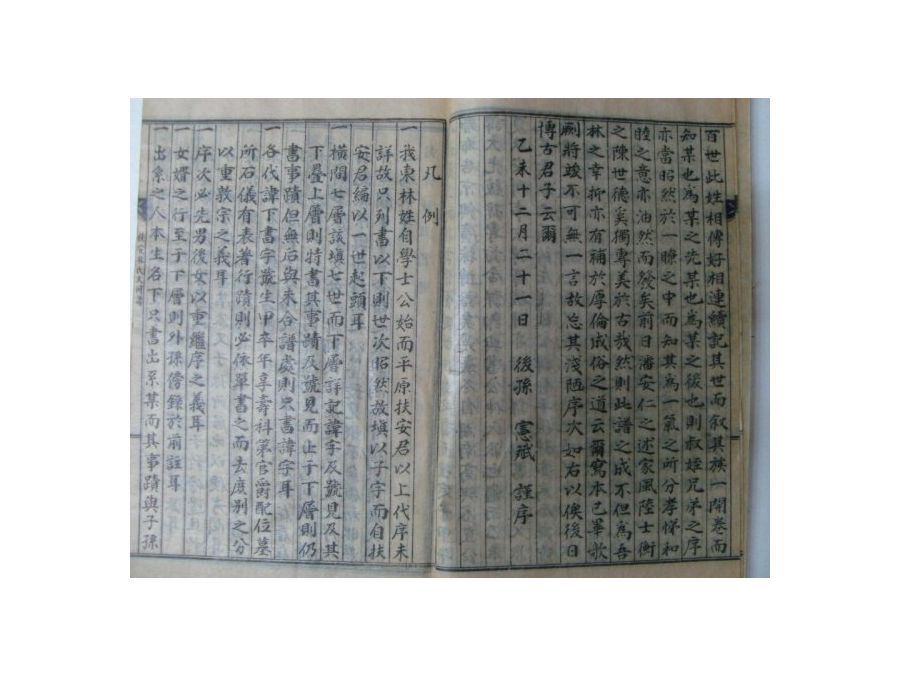 百世此姓相傳好相連續記其世而叙其族一開卷而
知某也爲某之先某也爲某之後也則叔姪兄弟之序
亦當昭然於一瞭之中而知其爲一氣之所分孝悌和
睦之意亦油然而發矣前日潘安仁之述家風陸士衡
之陳世德奚獨專美於古哉然則此譜之成不但爲吾
林之幸抑亦有補於厚倫成俗之道云爾寫本已畢歌
劂將竣不可無一言故忘其淺陋序次如右以俟後日
博古君子云爾
乙未十二月二十一日 後孫 憲 謹序
凡例
一我東林姓自學士公始而平原扶安君以上代序未
詳故只列書以下則世次昭然故塡以子字而自扶
安君編以一世起頭耳
一橫間七層該塡七世而下層詳記諱字及號見及其
下疊上層則特書其事蹟及號見而止于下層則仍
書事蹟但無后與未合譜處則只書諱字耳
一各代諱下書字號生甲卒年享壽科第官爵配位墓
所石儀有表著行請則必依單書之而去度別之分
以重敦宗之義耳
一序次必先男後女以重繼序之義耳
一女婿之行至于下層則外孫傍錄於前註耳
一出系之人本生名下只書出系某而其事蹟與子孫